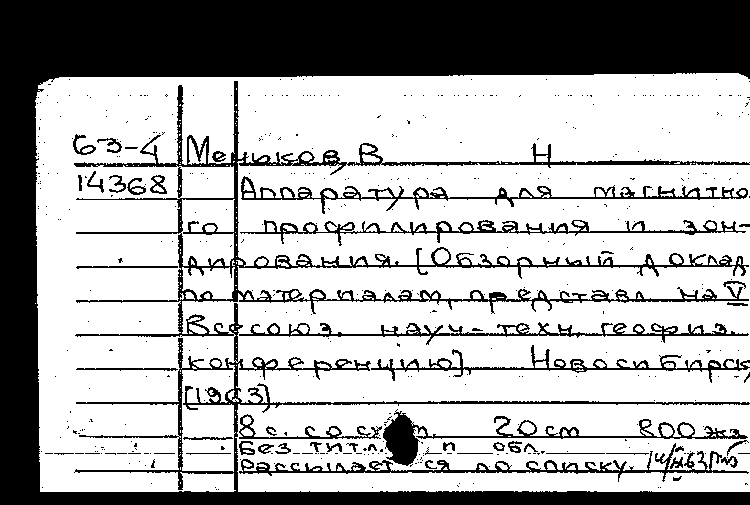 63-4 Меньков, В Н
14368 Аппаратура для магнитно
го профилирования и зон-
дирования. [Обзорный доклад
по материалам, представл. на V
Всесоюз. науч-техн. геофиз.
конференцию], Новосибирск
[1963],
8 с. со 20 cm 200 экз
Без тит.л. и обл.
Рассылается по списку.